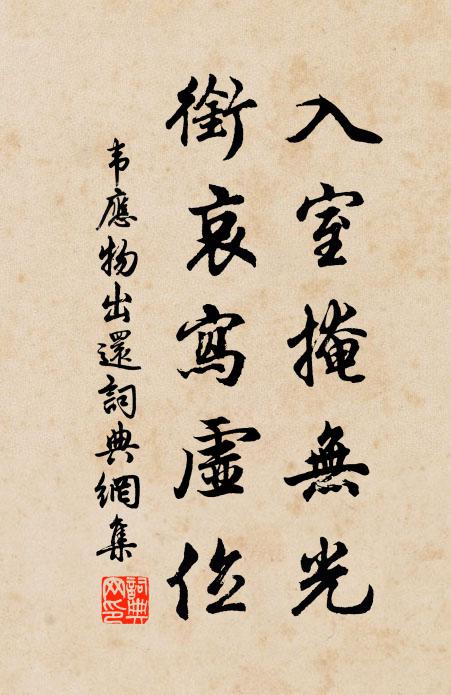 入室掩無光
銜哀寫虛位
韦應物出還詞典網集
詞典網印